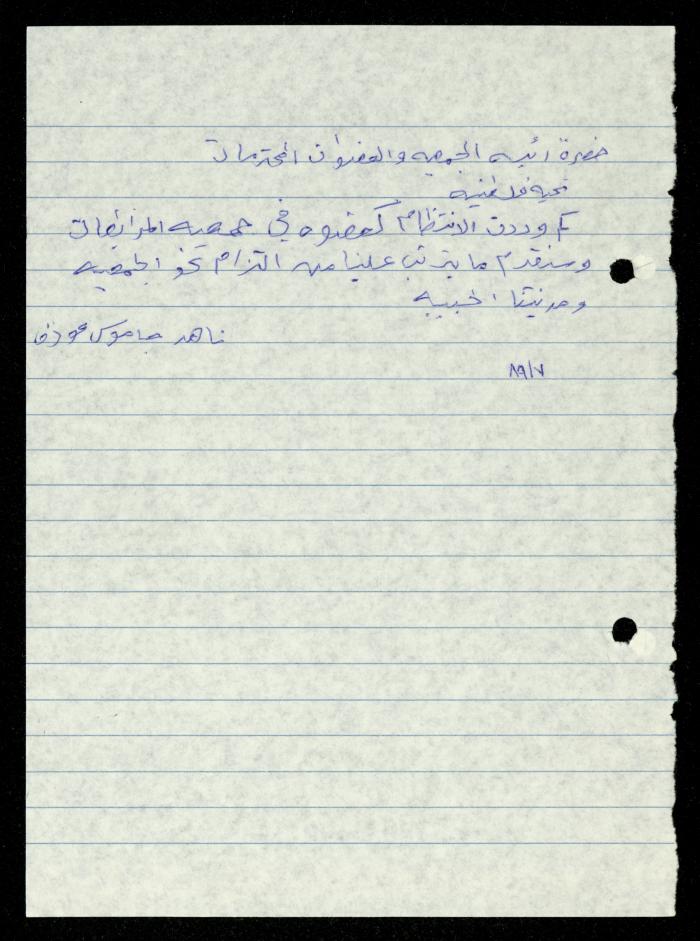 حضرة رئيسه الجمعيه والعضوات المحترمات
تحيه فلسطنيه
وددت الانتظام كعضوه في جمعيه المرابطات
وسنقدم ما يترتب علينا من التزام نحو الجمعيه
ومدينتنا الحبيبه
ناهد جاموس عوده
٨٩/٧